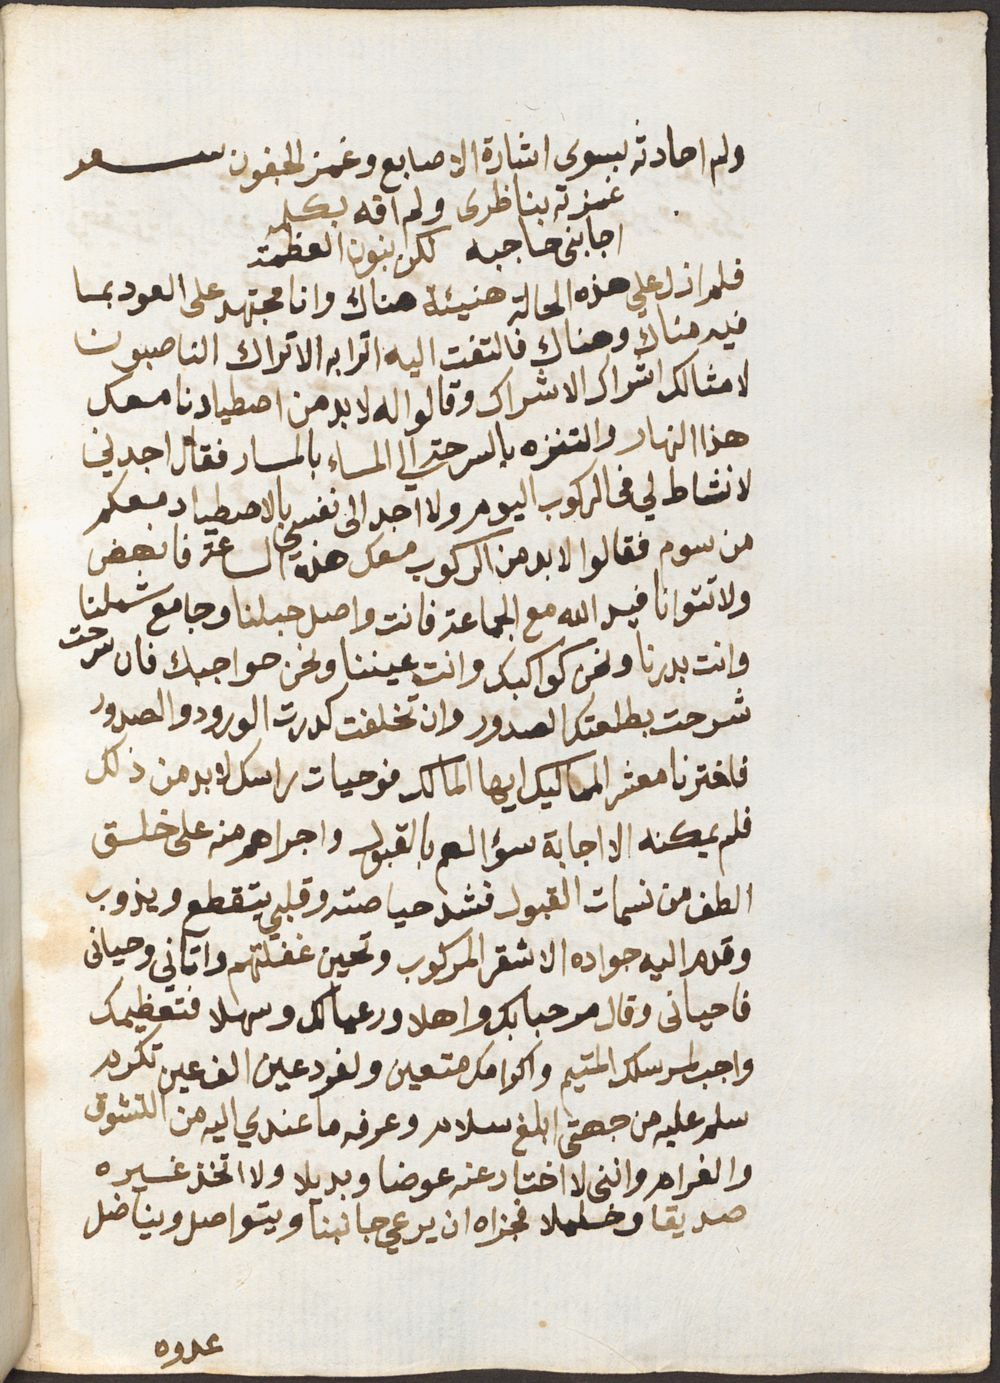 ولم احادثه بسوى اشارة الاصابع وغمز الجفون شعر
غمزته بناظري ولم افه بكلمه
اجابني حاجبه لكن بنون العظمة
فلم ازل على هذه الحالة هنيئة هناك وانا مجتهد على العود بما
فيه مناك وهناك فالتفت اليه اترابه الاتراك الناصبون
لامثالك اشراك الاشراك وقالوا له لا بد من اصطيادنا معك
هذا النهار والتنزه بالسرحة الى المساء بالمسار فقال اجدني
لا نشاط لي في الركوب اليوم ولا اجد الى نفسي بالاصطياد معكم
من سوم فقالوا لا بد من الركوب معك هذه الساعة فانهض
ولا تتوانا فيد الله مع الجماعة فانت واصل حبلنا وجامع شملنا
وانت بدرنا ونحن كواكبك وانت عيننا ونحن حواجبك فان سرحت
شرحت بطلعتك الصدور وان تخلفت كدرت الورود والصدور
فاخترنا معشر المماليك ايها المالك فوحيات راسك لا بد من ذلك
فلم يمكنه الا اجابة سؤالهم بالقبول واجراهم منه على خلق
الطف من نسمات القبول فشد حياصته وقلبي يتقطع ويذوب
وقدم اليه جواده الاشقر المركوب وتحين غفلتهم واتاني وحياني
فاحياني وقال مرحبا بك واهلا ورعيا لك وسهلا فتعظيمك
واجب لمرسلك المتيم واكرامك متعين ولفرد عين الف عين تكرم
سلم عليه من جهتي ابلغ سلام وعرفه ما عندي اليه من التشوق
والغرام وانني لا اختار عنه عوضا وبديلا ولا اتخذ غيره
صديقا وخليلا فجزاه ان يرعي جانبنا ويتواصل ويناضل
عدوه